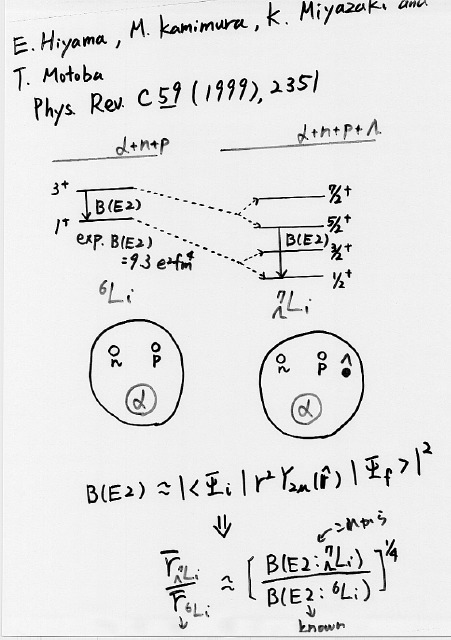 E. Hiyama, M. Kamimura, K. Miyazaki and
T. Motoba
Phys. Rev. C 59 (1999), 2351
α+n+p
α+n+p+Λ
3+
B(E2)
1+
exp. B(E2)
=9.3 e²fm⁴
⁶Li
7/2+
5/2+
B(E2)
3/2+
1/2+
⁷ΛLi
n p
α
n p Λ
α
B(E2) ≈ |<Ψi | r² Y2μ(r̂) | Ψf>|²
⇓
r̄⁷ΛLi / r̄⁶Li ≈ [ B(E2: ⁷ΛLi) / B(E2: ⁶Li) ]^1/4
known